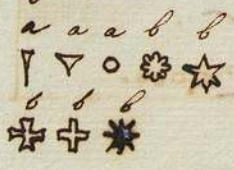 a a a b b
b b b